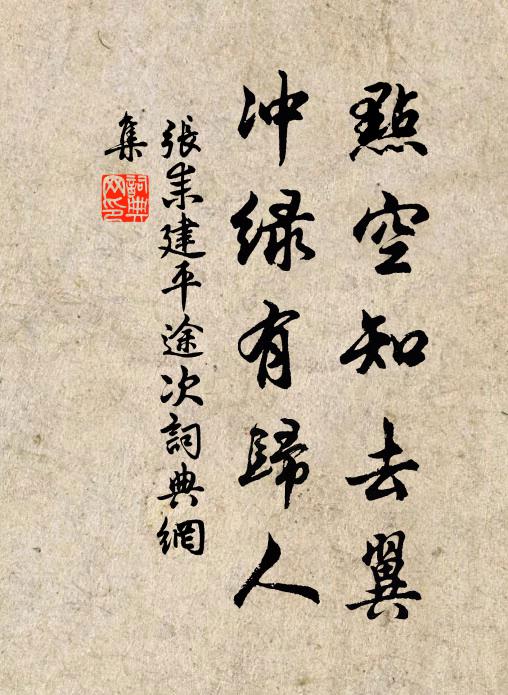 點空知去翼
冲緑有歸人
張耒建平途次詞典網
集
詞典
网印